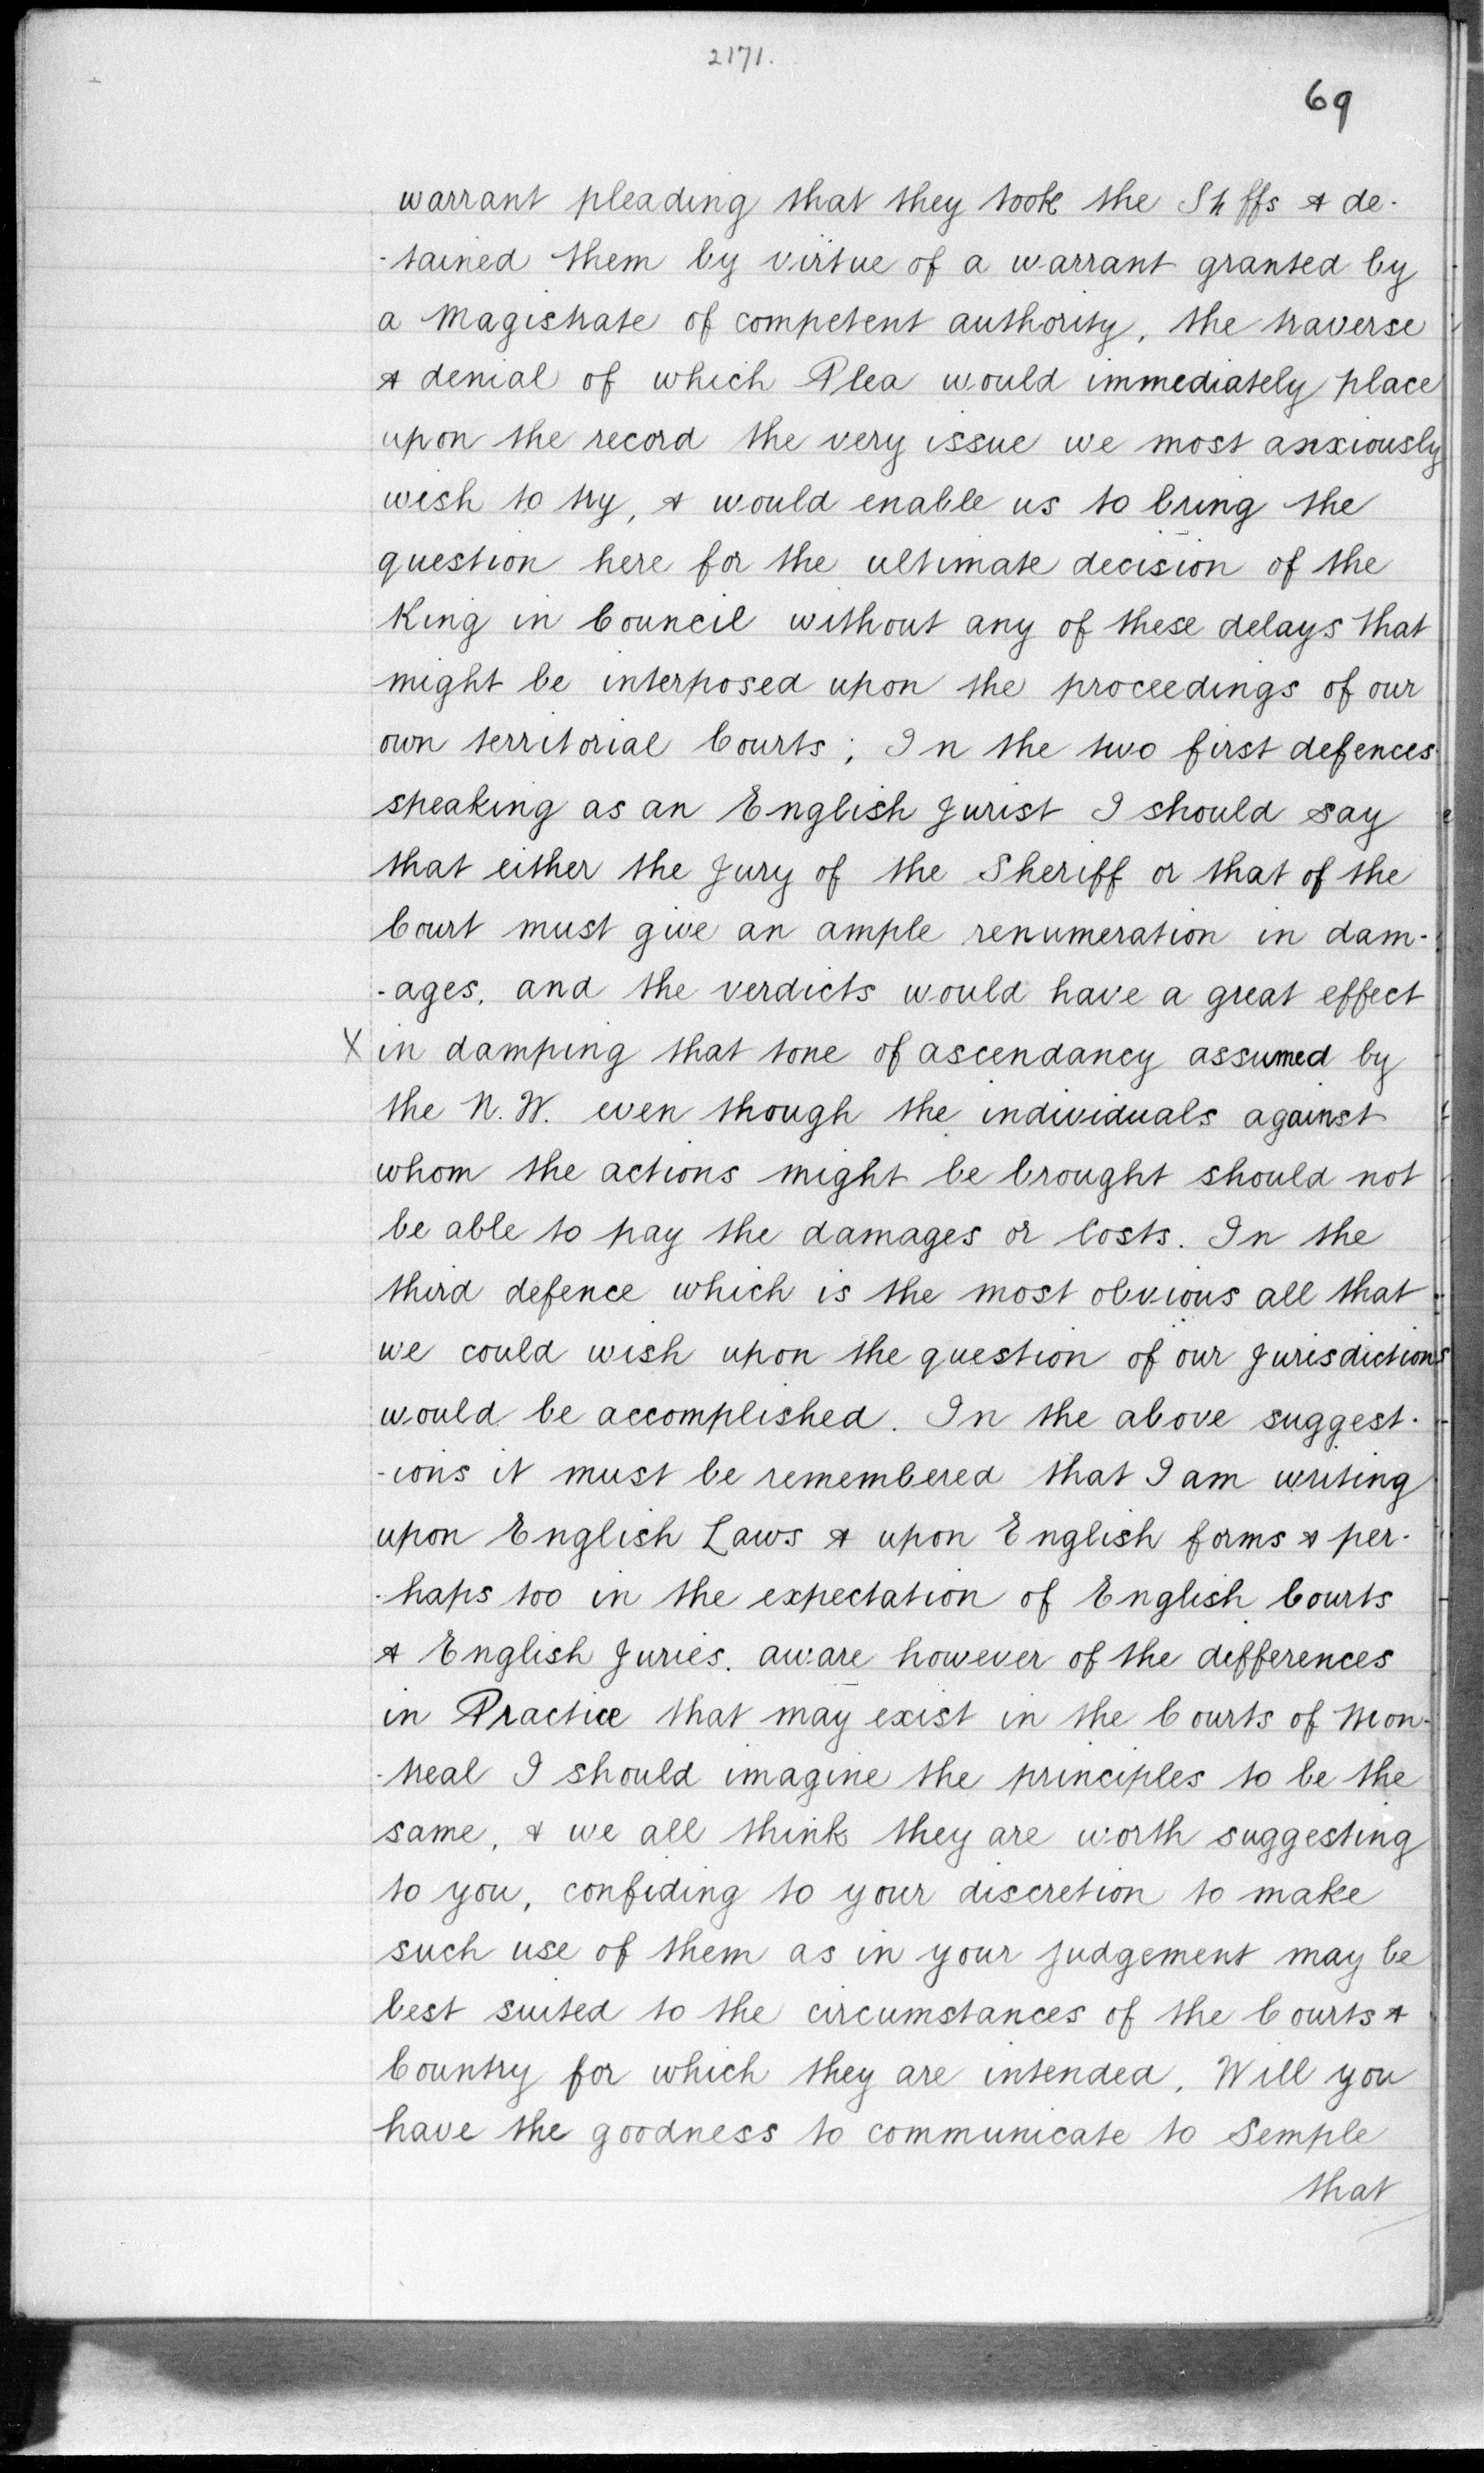 2171.
69
warrant pleading that they took the Sh ffs & de-
-tained them by virtue of a warrant granted by
a Magistrate of competent authority, the traverse
& denial of which Plea would immediately place
upon the record the very issue we most anxiously
wish to try, & would enable us to bring the
question here for the ultimate decision of the
King in Council without any of these delays that
might be interposed upon the proceedings of our
own territorial Courts; In the two first defences
speaking as an English Jurist I should say
that either the Jury of the Sheriff or that of the
Court must give an ample renumeration in dam-
-ages, and the verdicts would have a great effect
X in damping that tone of ascendancy assumed by
the N.W. even though the individuals against
whom the actions might be brought should not
be able to pay the damages or Costs. In the
third defence which is the most obvious all that
we could wish upon the question of our Jurisdictions
would be accomplished. In the above suggest-
-ions it must be remembered that I am writing
upon English Laws & upon English forms & per-
-haps too in the expectation of English Courts
& English Juries. aware however of the differences
in Practice that may exist in the Courts of Mon-
-treal I should imagine the principles to be the
same, & we all think they are worth suggesting
to you, confiding to your discretion to make
such use of them as in your judgement may be
best suited to the circumstances of the Courts &
Country for which they are intended. Will you
have the goodness to communicate to Semple
that